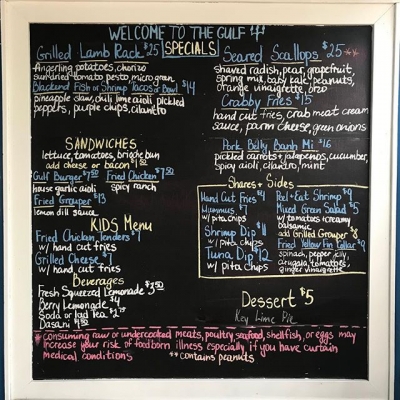 WELCOME TO THE GULF "4"
SPECIALS
Grilled Lamb Rack $25
fingerling potatoes, chorizo
sundried tomato pesto micro green
Blackend Fish or Shrimp Tacos or Bowl $14
pineapple slaw, chili lime aioli pickled
peppers, purple chips, cilantro
Seared Scallops $25**
shaved radish, pear, grapefruit,
spring mix, baby kale, peanuts,
orange vinaigrette, orzo
Crabby Fries $15
hand cut fries, crab meat cream
sauce, parm cheese, green onions
Pork Belly Banh Mi $16
pickled carrots + jalapenos, cucumber,
spicy aioli, cilantro, mint
SANDWICHES
lettuce, tomatoes, brioche bun
add cheese or bacon $1.50
Gulf Burger $7.50 Fried Chicken $7.50
house garlic aioli spicy ranch
Fried Grouper $13
lemon dill sauce
KIDS Menu
Fried Chicken Tenders $7
w/ hand cut fries
Grilled Cheese $7
w/ hand cut fries
Beverages
Fresh Squeezed Lemonade $3.50
Berry Lemonade $4
Soda or Iced Tea $2.75
Dasani $2.50
Shares + Sides
Hand Cut Fries $4
Hummus $7
w/ pita chips
Shrimp Dip $11
w/ pita chips
Tuna Dip $12
w/ pita chips
Peel + Eat Shrimp
Mixed Green Salad $5
w/ tomatoes + creamy
balsamic
add Grilled Grouper $8
Fried Yellow Fin Collar $9
spinach, pepper jelly,
tomatoes,
ginger vinaigrette
Dessert $5
Key Lime Pie
*consuming raw or undercooked meats, poultry, seafood, shellfish, or eggs may
increase your risk of foodborn illness especially if you have curtain
medical conditions **contains peanuts